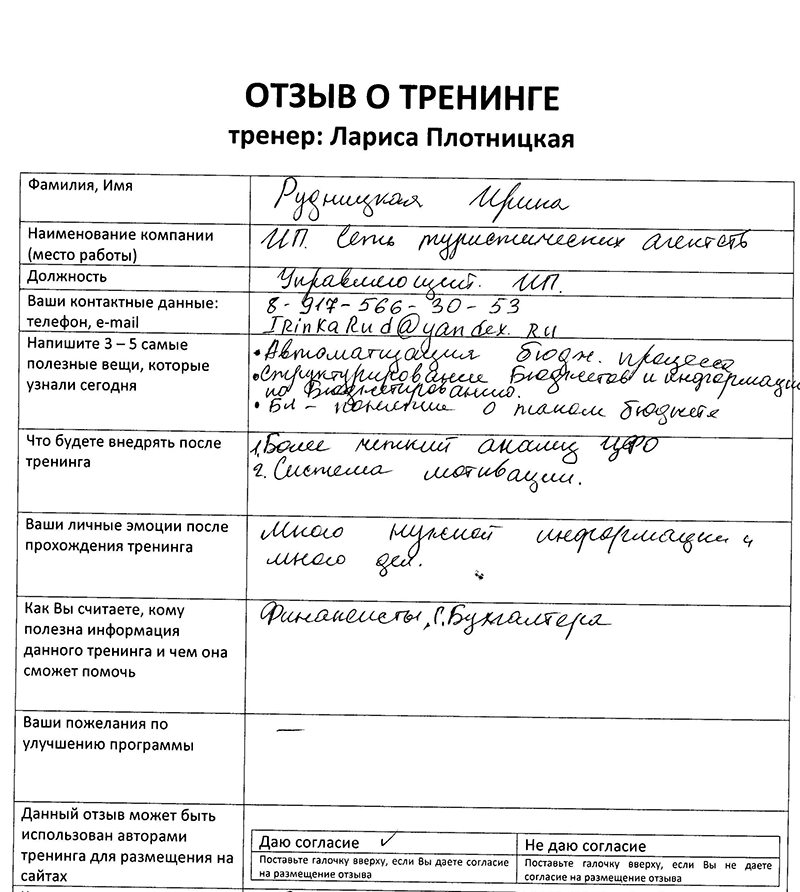 ОТЗЫВ О ТРЕНИНГЕ
тренер: Лариса Плотницкая
Фамилия, Имя
Рудницкая Ирина
Наименование компании
(место работы)
ИП. Сеть туристических агентств
Должность
Управляющий. ИП.
Ваши контактные данные:
телефон, e-mail
8-917-566-30-53
IRinkaRud@yandex.Ru
Напишите 3 – 5 самые
полезные вещи, которые
узнали сегодня
•Автоматизация бюдж. процесса
•Структурирование Бюджетов и информации
по Бюджетированию.
• - понятие о таком бюджете
Что будете внедрять после
тренинга
1.Более четкий анализ ЦФО
2.Система мотивации.
Ваши личные эмоции после
прохождения тренинга
Много нужной информации и
много дел.
Как Вы считаете, кому
полезна информация
данного тренинга и чем она
сможет помочь
Финансисты, Г.Бухгалтера
Ваши пожелания по
улучшению программы
—
Данный отзыв может быть
использован авторами
тренинга для размещения на
сайтах
Даю согласие ✓
Поставьте галочку вверху, если Вы даете согласие
на размещение отзыва
Не даю согласие
Поставьте галочку вверху, если Вы не даете
согласие на размещение отзыва